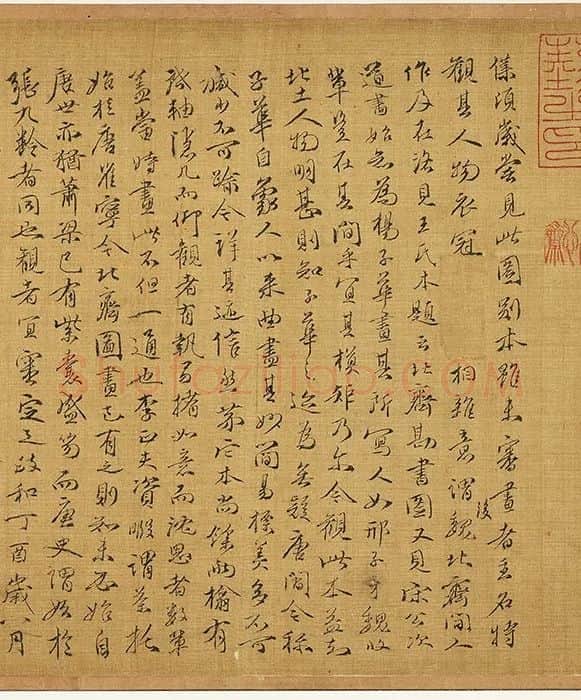 僕頃歲嘗見此圖別本雖未審畫者主名特
觀其人物衣冠相雜意謂後魏北齊間人
作及在洛見王氏本題云北齊勘書圖又見宋公次
道書始知為楊子華畫其所寫人如邢子才魏收
輩豈在其間乎宜其模矩乃爾今觀此本益知
北土人物明甚則知子華之迹為無疑唐閻令稱
子華自象人以來曲盡其妙簡易標美多不可
減少不可踰今詳其迹信然第它本尚餘兩榻有
啓軸隱几而仰觀者有執搘如意而沈思者數輩
蓋當時畫此不但一通也李正夫資暇謂茶托
始於唐崔寧今北齊圖畫已有之則知未必始自
唐世亦猶蕭梁已有紫囊盛笏而唐史謂始於
張九齡者同也觀者宜審定之政和丁酉歲八月